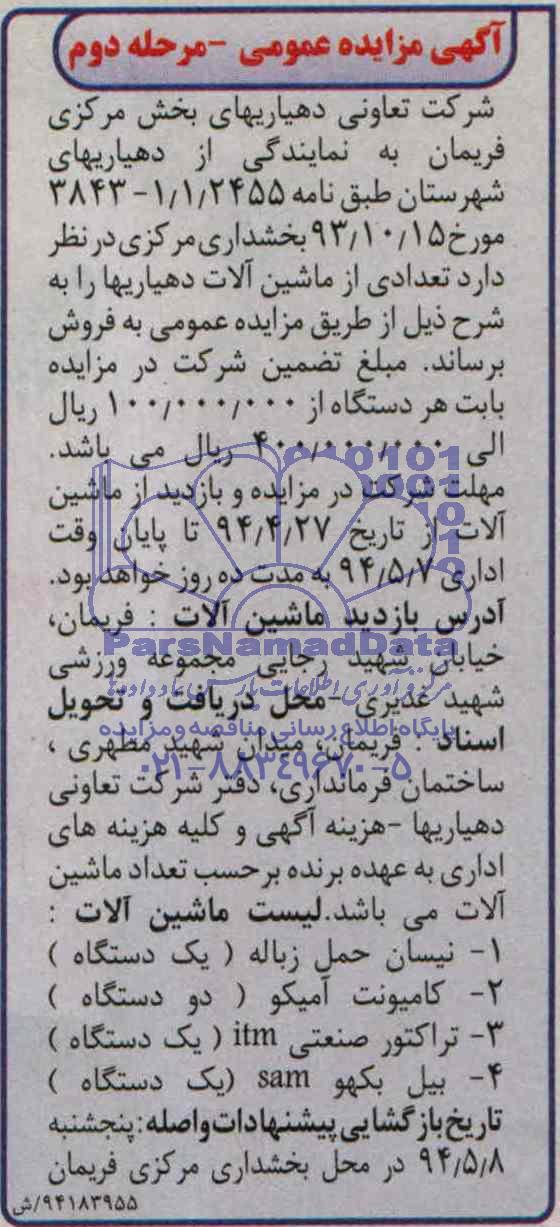 آگهی مزایده عمومی -مرحله دوم
شرکت تعاونی دهیاریهای بخش مرکزی
فریمان به نمایندگی از دهیاریهای
شهرستان طبق نامه ۱/۱/۲۴۵۵-۳۸۴۳
مورخ ۹۳/۱۰/۱۵ بخشداری مرکزی در نظر
دارد تعدادی از ماشین آلات دهیاریها را به
شرح ذیل از طریق مزایده عمومی به فروش
برساند. مبلغ تضمین شرکت در مزایده
بابت هر دستگاه از ۱۰۰/۰۰۰/۰۰۰ ریال
الی ۴۰۰/۰۰۰/۰۰۰ ریال می باشد.
مهلت شرکت در مزایده و بازدید از ماشین
آلات از تاریخ ۹۴/۴/۲۷ تا پایان وقت
اداری ۹۴/۵/۷ به مدت ده روز خواهد بود.
آدرس بازدید ماشین آلات : فریمان،
ParsNamadData
خیابان شهید رجایی مجموعه ورزشی
مرکز فرآوری اطلاعات پارس نماد داده ها
شهید غدیری -محل دریافت و تحویل
پایگاه اطلاع رسانی مناقصه و مزایده
اسناد : فریمان، میدان شهید مطهری ،
۰۲۱-۸۸۳۴۹۶۷۰-۵
ساختمان فرمانداری، دفتر شرکت تعاونی
دهیاریها -هزینه آگهی و کلیه هزینه های
اداری به عهده برنده برحسب تعداد ماشین
آلات می باشد.لیست ماشین آلات :
۱- نیسان حمل زباله ( یک دستگاه )
۲- کامیونت آمیکو ( دو دستگاه )
۳- تراکتور صنعتی itm ( یک دستگاه )
۴- بیل بکهو sam (یک دستگاه )
تاریخ بازگشایی پیشنهادات واصله: پنجشنبه
۹۴/۵/۸ در محل بخشداری مرکزی فریمان
۹۴۱۸۳۹۵۵/ش